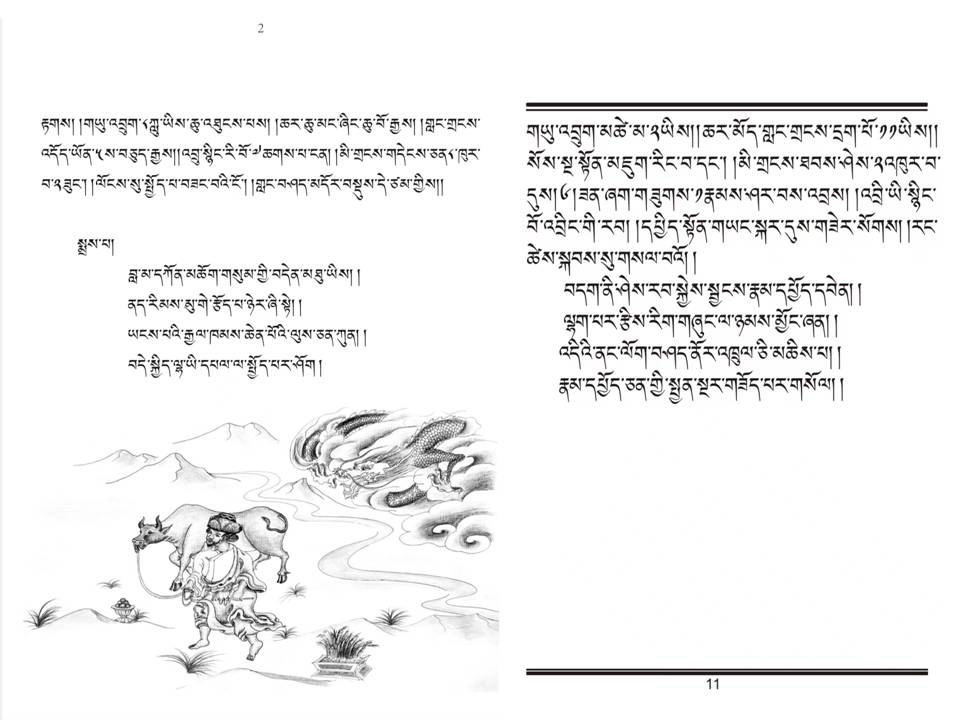 2
རྟགས། །གཡུ་འབྲུག་༨ཀླུ་ཡིས་ཆུ་འཐུངས་པས། །ཆར་ཆུ་མང་ཞིང་ཆུ་བོ་རྒྱས། །གླང་གྲངས་
འདོད་ཡོན་༥ས་བཅུད་རྒྱས།།འབྲུ་སྙིང་རི་བོ་༧ཆགས་པ་ངན། །མི་གྲངས་གདེངས་ཅན་༨ཁུར་
བ་༢ཟུང་། །ལོངས་སུ་སྤྱོད་པ་བཟང་བའི་ངོ་། །གླང་བཤད་མདོར་བསྡུས་དེ་ཙམ་གྱིས།།
སྨྲས་པ།
བླ་མ་དཀོན་མཆོག་གསུམ་གྱི་བདེན་མཐུ་ཡིས། །
ནད་རིམས་མུ་གེ་རྩོད་པ་ཉེར་ཞི་སྟེ། །
ཡངས་པའི་རྒྱལ་ཁམས་ཆེན་པོའི་ལུས་ཅན་ཀུན། །
བདེ་སྐྱིད་ལྷ་ཡི་དཔལ་ལ་སྤྱོད་པར་ཤོག །
གཡུ་འབྲུག་མཚེ་མ་༢ཡིས།།ཆར་མོད་གླང་གྲངས་དྲག་པོ་༡༡ཡིས།།
སོས་སྔ་སྟོན་མཇུག་རིང་བ་དང་། །མི་གྲངས་ཐབས་ཤེས་༢འཁུར་བ་
དུས།༦།ཟན་ཞག་གཟུགས་༡རྣམས་ཤར་བས་འབྲས། །འབྲི་ཡི་སྙིང་
བོ་འབྲིང་གི་རབ། །དཔྱིད་སྟོན་གཡང་སྐར་དུས་གཟེར་སོགས། །རང་
ཚེས་སྐབས་སུ་གསལ་བའོ། །
བདག་ནི་ཤེས་རབ་སྐྱེས་སྦྱངས་རྣམ་དཔྱོད་དབེན། །
ལྷག་པར་རྩིས་རིག་གཞུང་ལ་ཉམས་མྱོང་ཞན། །
འདིའི་ནང་ལོག་བཤད་ནོར་འཁྲུལ་ཅི་མཆིས་པ། །
རྣམ་དཔྱོད་ཅན་གྱི་སྤྱན་སྔར་གཟོད་པར་གསོལ། །
11